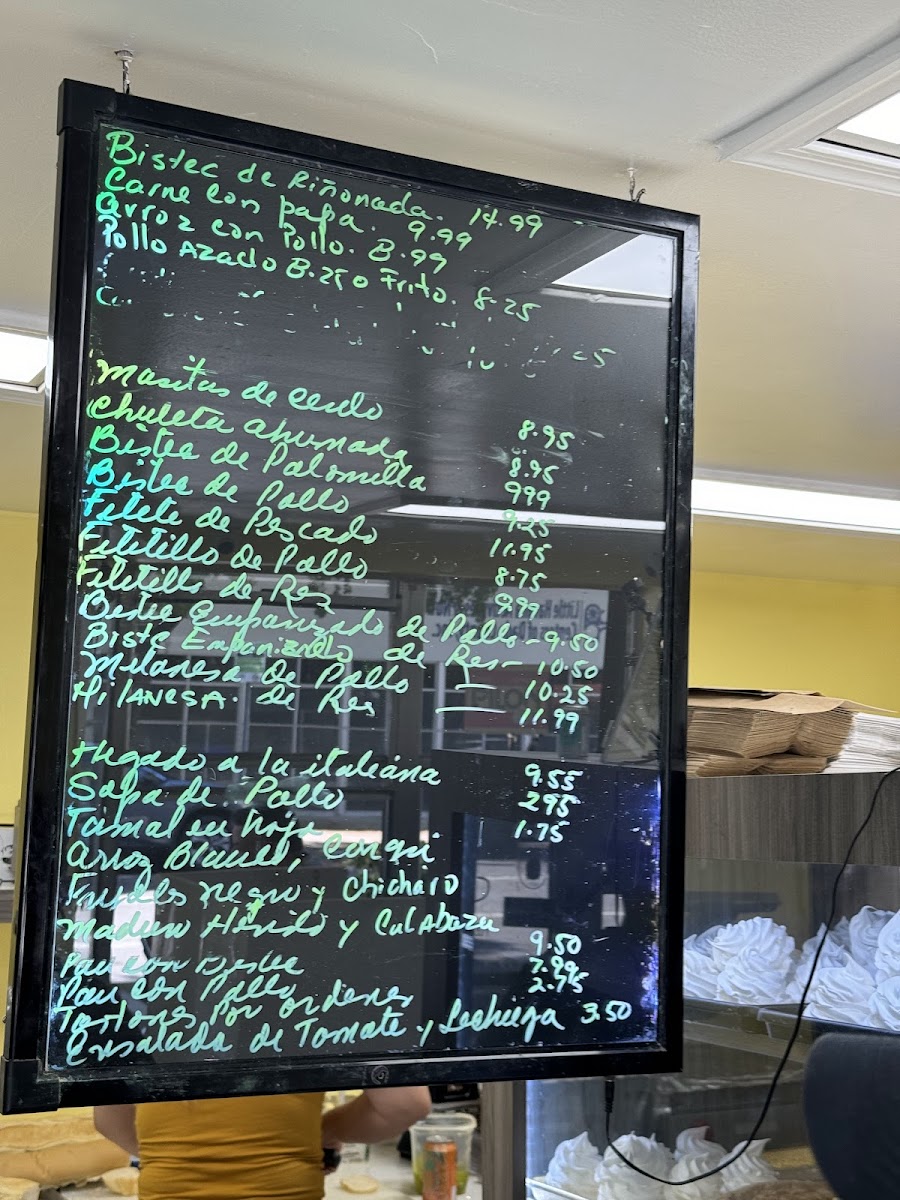 Bistec de Riñonada. 14.99
Carne con papa. 9.99
arroz con Pollo. 8.99
Pollo Azado B.zio Frito. 8.25
Masitas de Cerdo 8.95
Chuleta ahumada 8.95
Bistec de Palomilla 999
Bistec de Pollo 9.25
Filete de Pescado 11.95
Filetillo de Pollo 8.75
Filetillo de Res 999
Bistec Empanizado de Pollo - 9.50
Biste Empanizado de Res - 10.50
Milanesa de Pollo 10.25
MilANESA. de Res 11.99
Higado a la italiana 9.55
Sopa de Pollo 295
Tamal en hoja 1.75
Arroz Blanco, congri
Frijoles negro y Chicharo
Maduro Hervido y CalAbaza
Pan con Bistec 9.50
Pan con Pollo 7.99
Tostones Por ordenes 2.75
Ensalada de Tomate y Lechuga 3.50